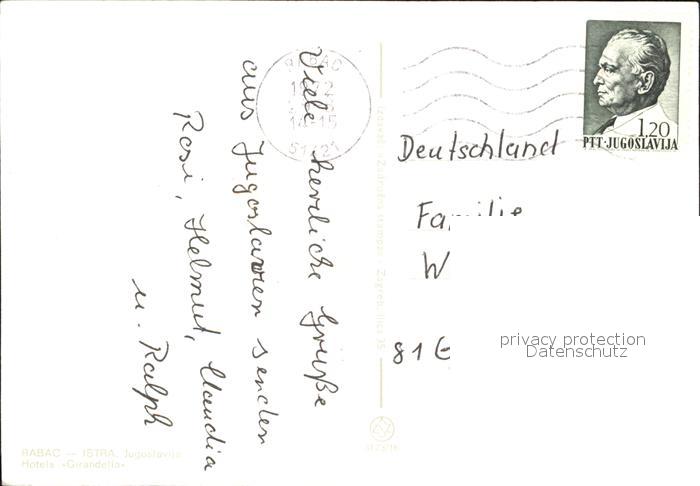 Viele herzliche Grüße
aus Jugoslawien senden
Rosi, Helmut, Claudia
u. Ralph
RABAC
14-15
51221
1.20
PTT·JUGOSLAVIJA
Deutschland
Familie
W
81 E
privacy protection
Datenschutz
RABAC — ISTRA, Jugoslavija
Hotels «Girandella»